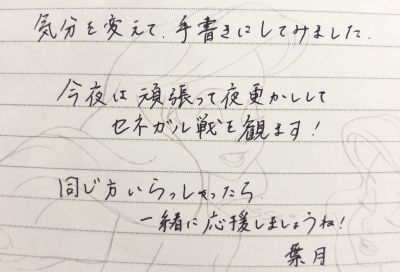 気分を変えて、手書きにしてみました.
今夜は頑張って夜更かしして
セネガル戦を観ます!
同じ方いらっしゃったら.
一緒に応援しましょうね!
葉月